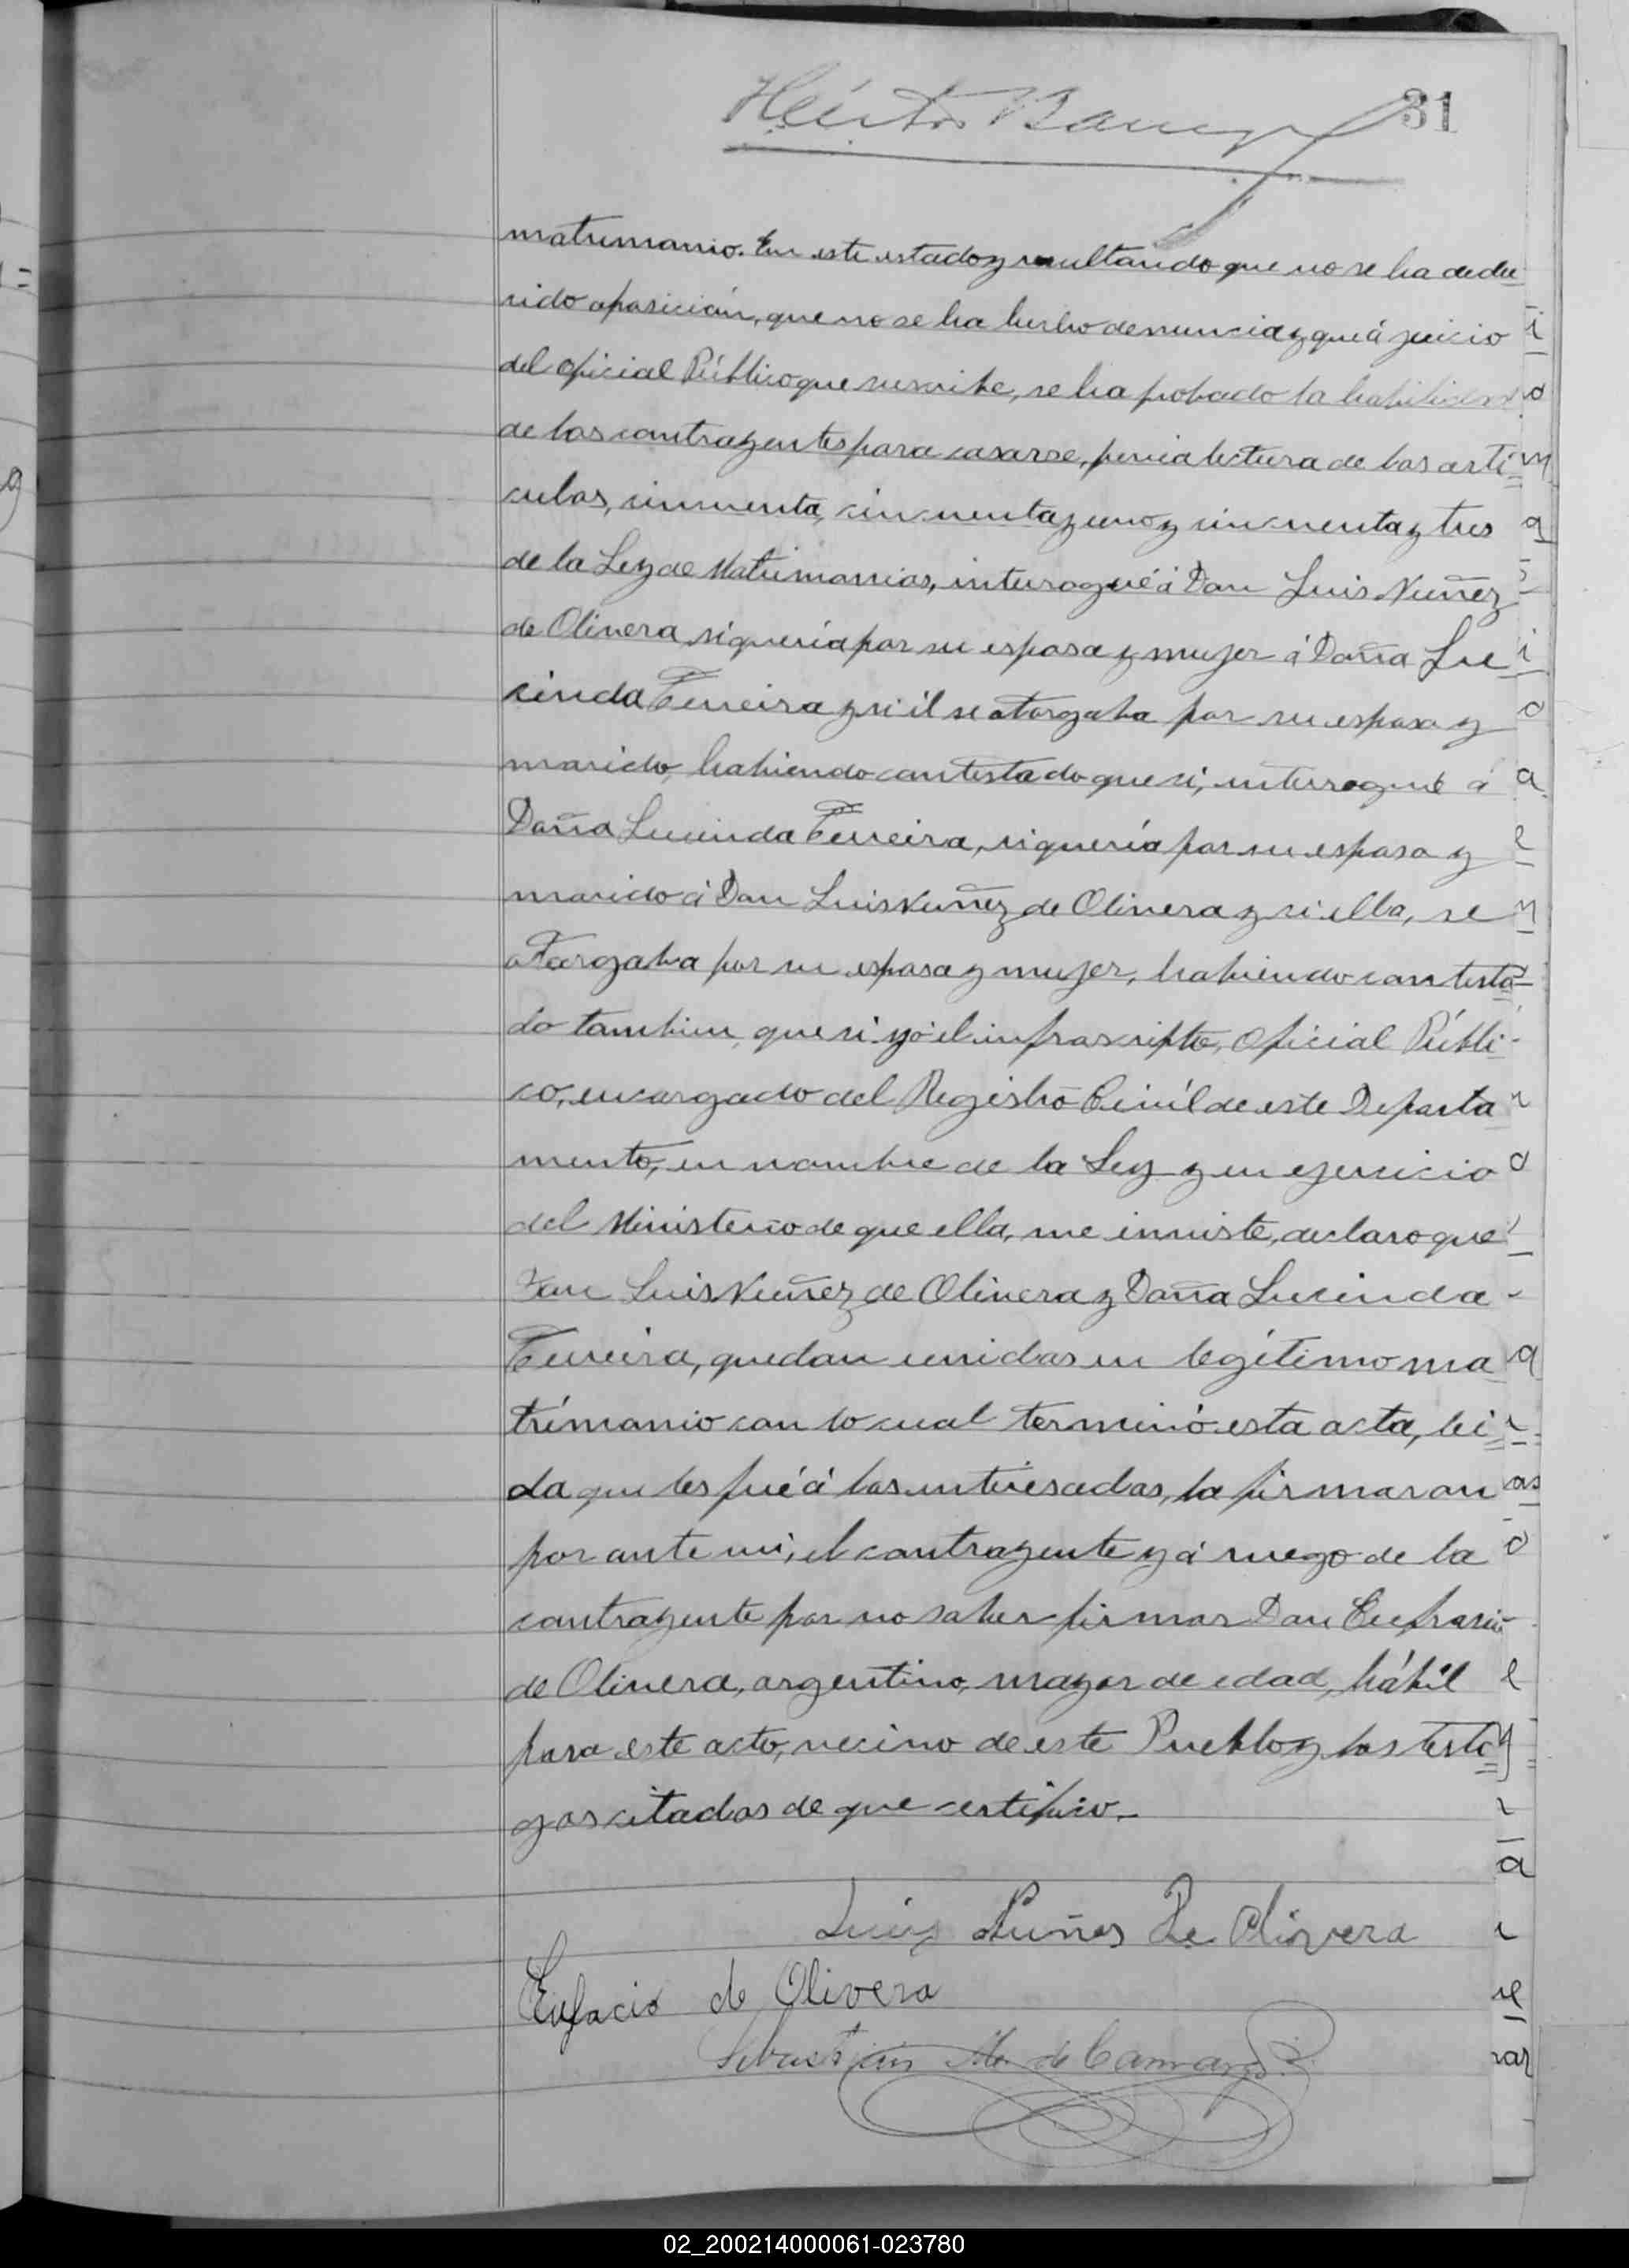 31
matrimonio. En este estado y resultando que no se ha dedu
cido oposición, que no se ha hecho denuncia y que á juicio
del oficial Público que suscribe, se ha probado la habilidad
de los contrayentes para casarse, previa lectura de los artí=
culos, cincuenta, cincuenta y uno y cincuenta y tres
de la Ley de Matrimonios, interrogué á Don Luis Nuñez
de Olivera si quería por su esposa y mujer á Doña Lu
cinda Ferreira y si él se otorgaba por su esposo y
marido, habiendo contestado que si, interrogué á
Doña Lucinda Ferreira, si quería por su esposo y
marido á Don Luis Nuñez de Olivera y si ella, se
otorgaba por su esposa y mujer, habiendo contesta=
do tambien, que si yó el infrascripto, Oficial Públi-
co, encargado del Registro Civíl de este Departa
mento, en nombre de la Ley y en ejercicio
del Ministerio de que ella, me inviste, declaro que
Don Luis Nuñez de Olivera y Doña Lucinda
Ferreira, quedan unidos en legítimo ma
trímonio con lo cual terminó esta acta, leí=
da que les fué á los interesados, la firmaron
por ante mi, el contrayente y á ruego de la
contrayente por no saber firmar Don Eufracio
de Olivera, argentino, mayor de edad, hábil
para este acto, vecino de este Pueblo y los testi=
gos citados de que certifico.-
Luis Nuñes De Olivera
Eufracio de Olivera
Sebastian M. de Camargo
02_200214000061-023780